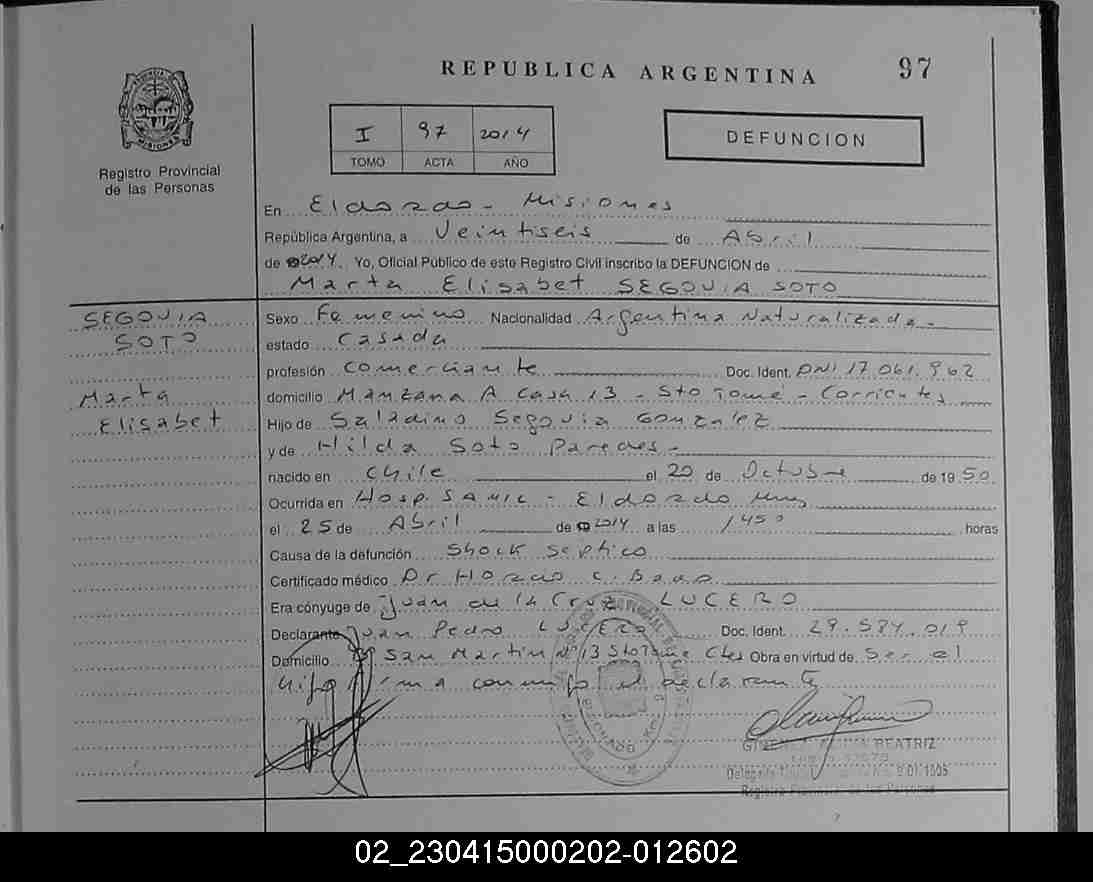 REPUBLICA ARGENTINA
97
Registro Provincial
de las Personas
I 97 2014
TOMO ACTA AÑO
DEFUNCION
En Eldorado - Misiones
República Argentina, a Veintiseis de Abril
de 2014. Yo, Oficial Público de este Registro Civil inscribo la DEFUNCION de
Marta Elisabet SEGOVIA SOTO
SEGOVIA
SOTO
Marta
Elisabet
Sexo Femenino Nacionalidad Argentina Naturalizada.-
estado Casada
profesión Comerciante Doc. Ident. DNI 17.061.962
domicilio Manzana A Casa 13 - Sto Tomé - Corrientes
Hijo de Saladino Segovia Gonzalez
y de Hilda Soto Paredes.-
nacido en Chile el 20 de Octubre de 1950
Ocurrida en Hosp. SAMIC - Eldorado Mnes
el 25 de Abril de 2014 a las 1450 horas
Causa de la defunción Shock Septico
Certificado médico Dr Horacio C.
Era cónyuge de Juan de la Cruz LUCERO
Declarante Juan Pedro LUCERO Doc. Ident. 29.584.019
Domicilio San Martin Nº 13 Sto Tome Ctes Obra en virtud de Ser el
hijo firma conmigo el declarante
BEATRIZ
Registro Provincial de las Personas
02_230415000202-012602